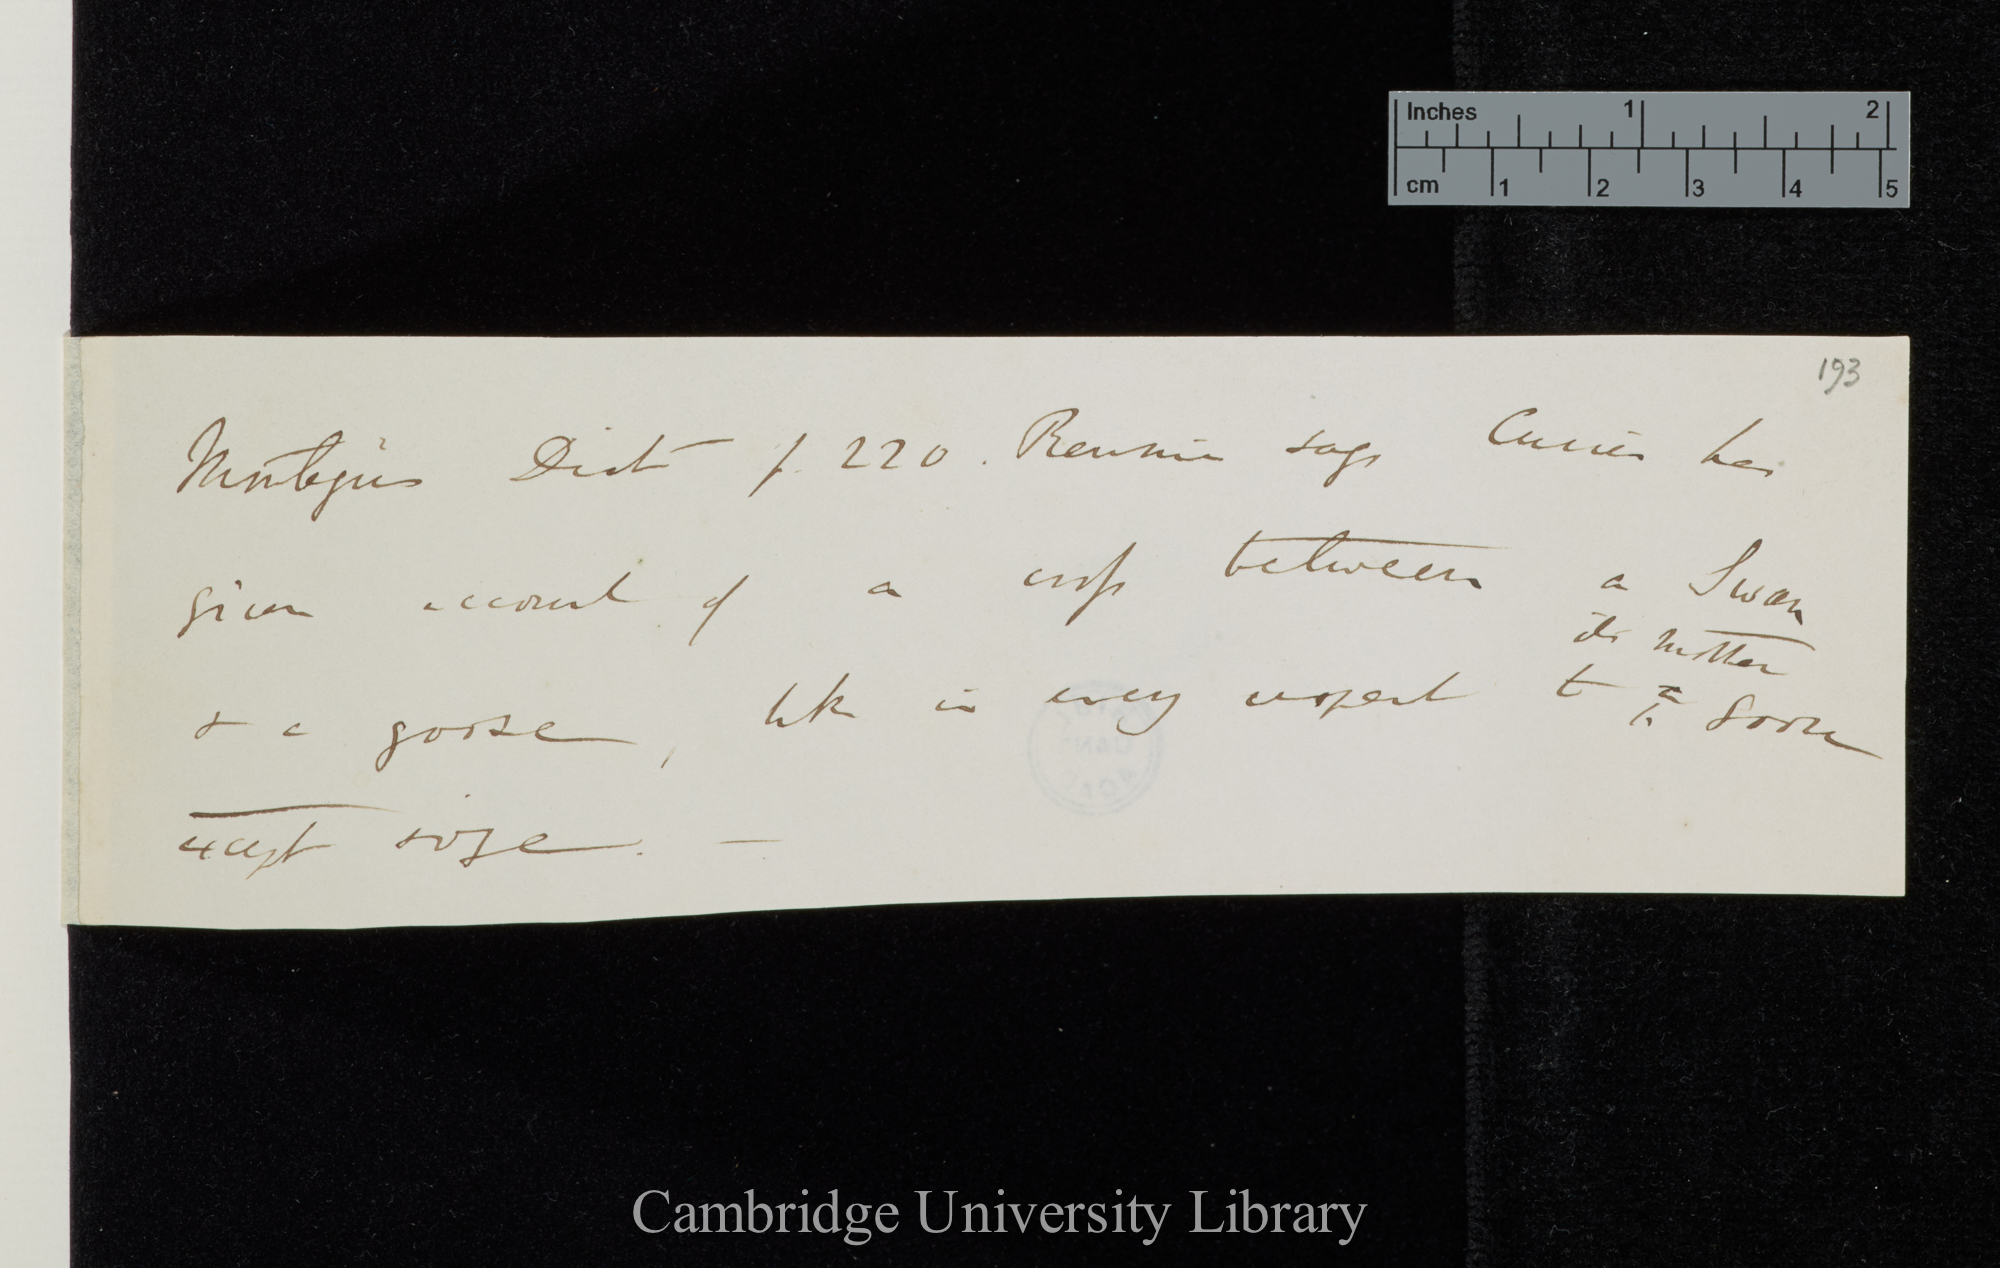 Inches 1 2
cm 1 2 3 4 5
193
Montagu's Dict p. 220. Rennie says Cuvier has
given account of a cross between a Swan
its mother
& a goose, like in every respect to a Goose
except size. —
Cambridge University Library